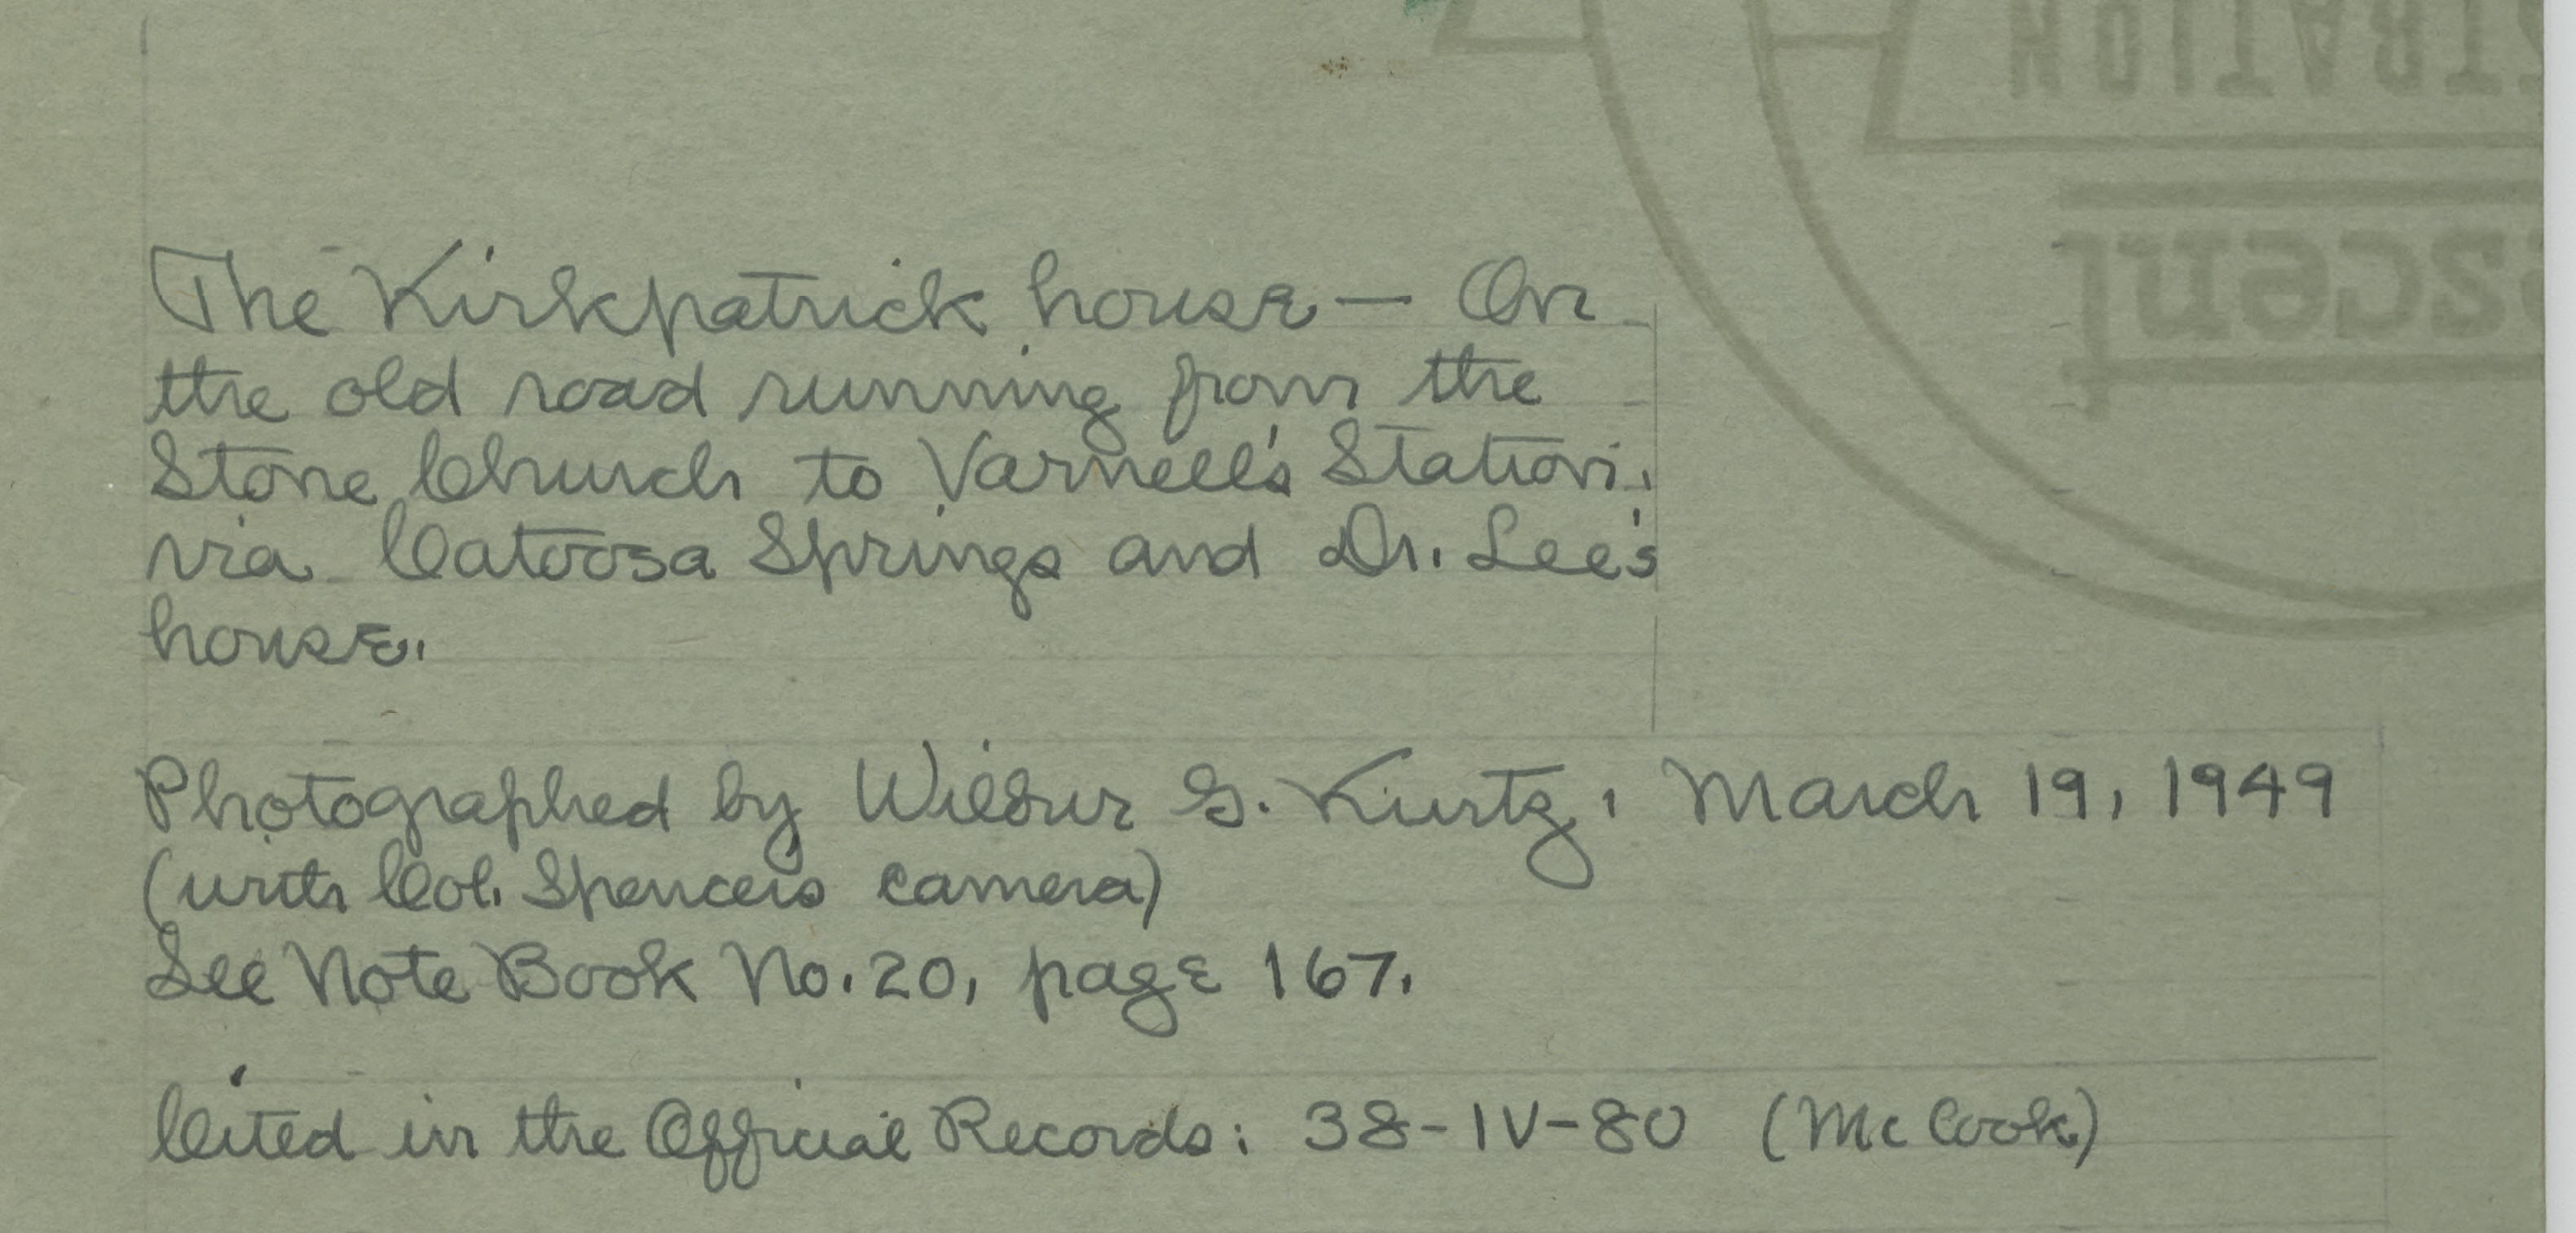 The Kirkpatrick house — On
the old road running from the
Stone Church to Varnell's Station,
via Catoosa Springs and Dr. Lee's
house.
Photographed by Wilbur G. Kurtz, March 19, 1949
(with Col. Spencer's camera)
See Note Book No. 20, page 167.
Cited in the Official Records: 38-IV-80 (McCook)